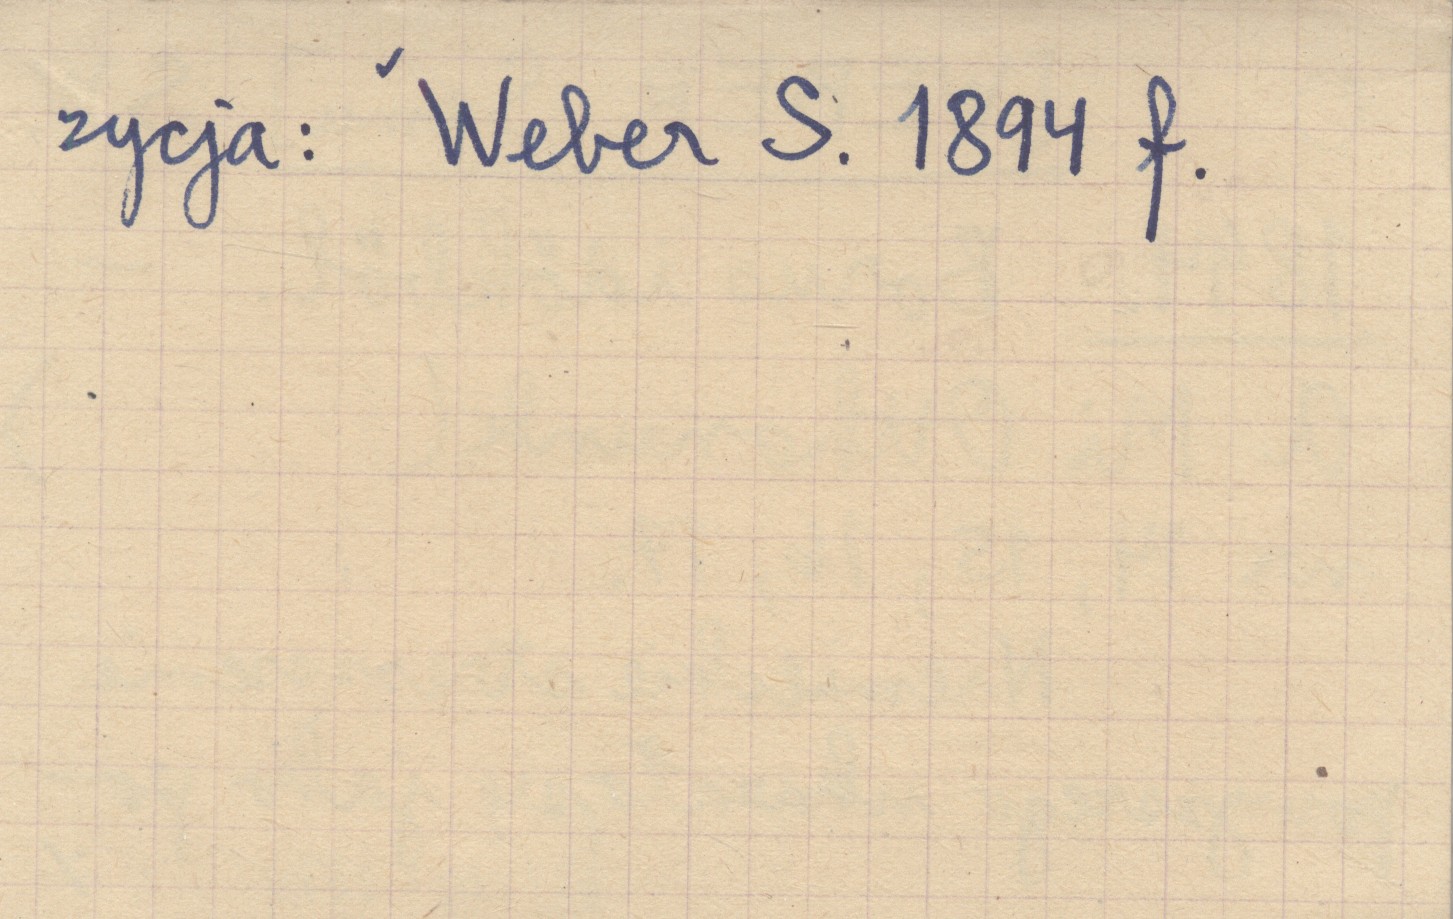 zycja: ✓Weber S. 1894 f.